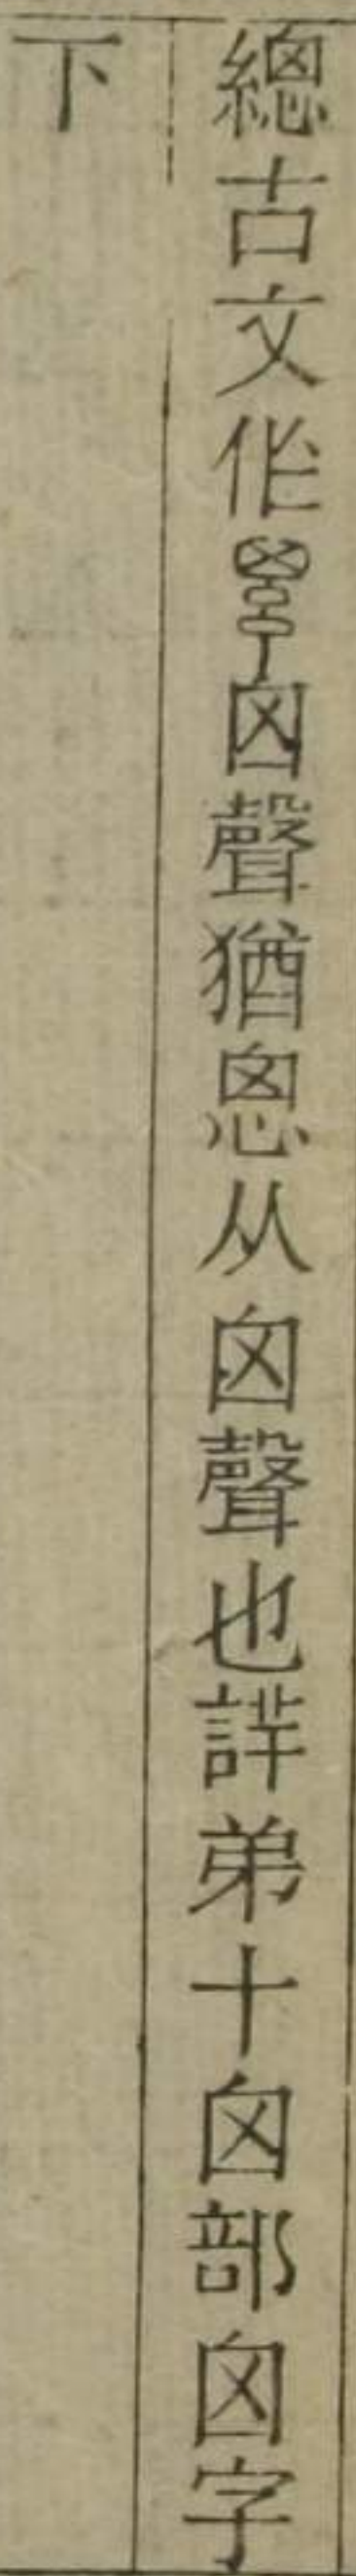 總古文作囟聲猶悤从囟聲也詳弟十囟部囟字
下